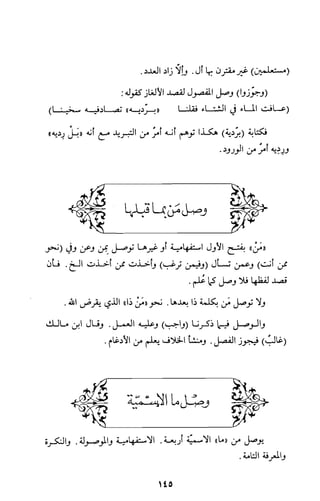 (مستعلمين) غير مقترن بها أل. وألّا زاد العدد.
(وجوّزوا) وصل المفصول لقصد الألغاز كقوله:
(عافت الماء في الشتاء فقلنا «بردّيه» تصادفيه سخينا)
فكتابة (بردّية) هكذا توهم أنه أمرٌ من التبريد مع أنه «بَلْ رِديه»
ورديه أمرٌ من الورود.
وصل مَن بما قبلها
«مَنْ» بفتح الأول استفهامية أو غيرها توصل بمن وعن وفي (نحو
ممن أنت) وعمن تسأل (وفيمن ترغب) وأخذت ممن أخذت الخ. فأن
قصد لفظها فلا وصل كما عُلم.
ولا توصل مَن بكلمة ذا بعدها. نحو «مَنْ ذا» الذي يقرض الله.
والوصل فيما ذكرنا (واجب) وعليه العمل. وقال ابن مالك
(غالبٌ) فيجوز الفصل. ومنشأ الخلاف يعلم من الأدغام.
وصل ما الاسمية
يوصل من «ما» الاسميّة أربعة. الاستفهامية والموصولة. والنكرة
والمعرفة التامة.
١٤٥